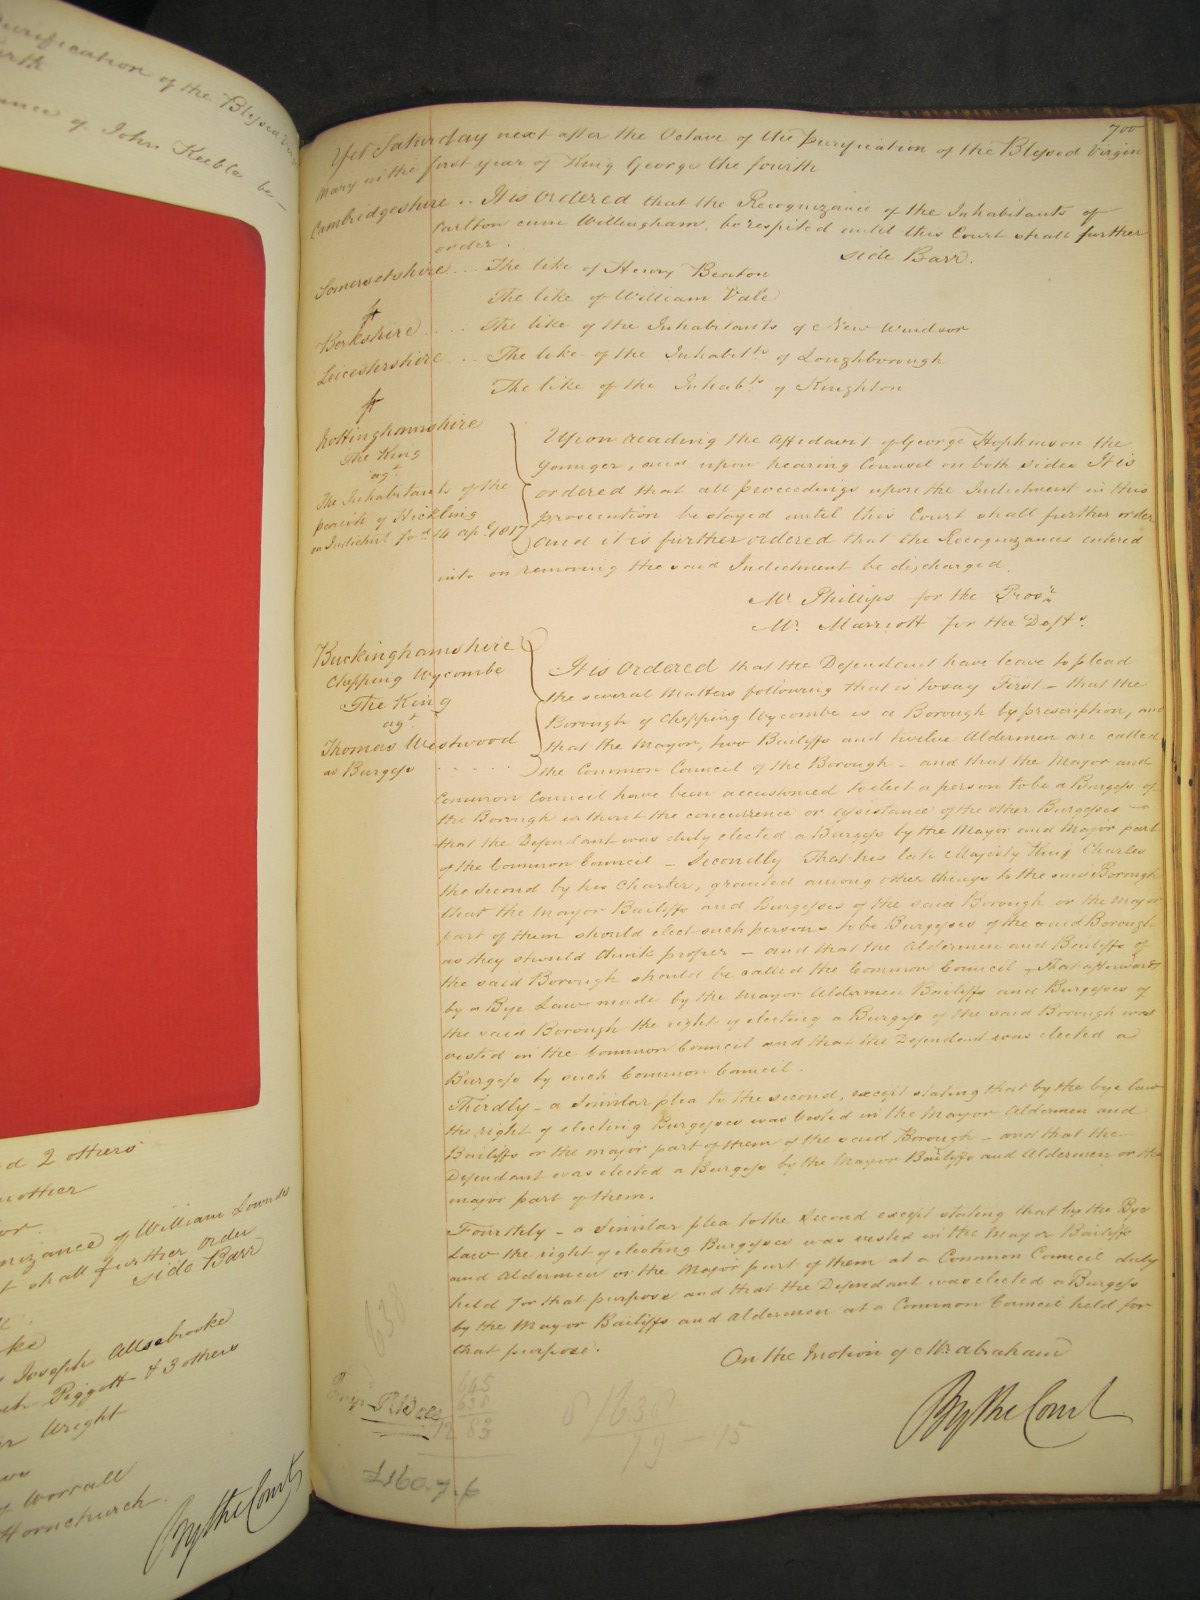 urification of the Blessed Virgin
urth
ance of John Keeble be-
d 2 others
nother
or
nizance of William Lownds
t shall further order
side Barr
ke
Joseph Allsebrooke
ch Piggott & 3 others
r Wright
Worrall
Hornchurch
By the Court
700
Yet Saturday next after the Octave of the purification of the Blessed Virgin
Mary in the first year of King George the fourth
Cambridgeshire .. It is Ordered that the Recognizance of the Inhabitants of
Carlton cum Willingham, be respited until this Court shall further
order.
side Barr.
Somersetshire ... The like of Henry Beaton
The like of William Vale
Berkshire .... The like of the Inhabitants of New Windsor
Leicestershire ... The like of the Inhabit.ts of Loughborough
The like of the Inhab.ts of Knighton
Nottinghamshire
The King
ag.t
The Inhabitants of the
parish of Hickling
on Indictmt. fo.d 14 Ap.l 1817
Upon reading the Affidavit of George Hopkinson the
Younger, and upon hearing Counsel on both sides It is
ordered that all proceedings upon the Indictment in this
prosecution be stayed until this Court shall further order
And it is further ordered that the Recognizances entered
into on removing the said Indictment be discharged.
Mr. Phillips for the Pros.r
Mr. Marriott for the Deft.s
Buckinghamshire
Chepping Wycombe
The King
ag.t
Thomas Westwood
as Burgess .....
It is Ordered that the Defendant have leave to plead
the several Matters following that is to say First - that the
Borough of Chepping Wycombe is a Borough by prescription, and
that the Mayor, two Bailiffs and twelve Aldermen are called
the Common Council of the Borough - and that the Mayor and
Common Council have been accustomed to elect a person to be a Burgess of
the Borough without the concurrence or assistance of the other Burgesses -
that the Defendant was duly elected a Burgess by the Mayor and Major part
of the Common Council - Secondly That his late Majesty King Charles
the Second by his Charter, granted among other things to the said Borough
that the Mayor Bailiffs and Burgesses of the said Borough or the major
part of them should elect such persons to be Burgesses of the said Borough
as they should think proper - and that the Aldermen and Bailiffs of
the said Borough should be called the Common Council - That afterwards
by a Bye Law made by the Mayor Aldermen Bailiffs and Burgesses of
the said Borough the right of electing a Burgess of the said Borough was
vested in the Common Council and that the Defendant was elected a
Burgess by such Common Council.
Thirdly - a similar plea to the second, except stating that by the bye law
the right of electing Burgesses was vested in the Mayor Aldermen and
Bailiffs or the major part of them of the said Borough - and that the
Defendant was elected a Burgess by the Mayor Bailiffs and Aldermen or the
major part of them.
Fourthly - a similar plea to the second except stating that by the Bye
Law the right of electing Burgesses was vested in the Mayor Bailiffs
and Aldermen or the Major part of them at a Common Council duly
held for that purpose and that the Defendant was elected a Burgess
by the Mayor Bailiffs and Aldermen at a Common Council held for
that purpose.
On the Motion of Mr. Abraham
By the Court
638
645
638
1283
8/638
79 - 15
£160.7.6